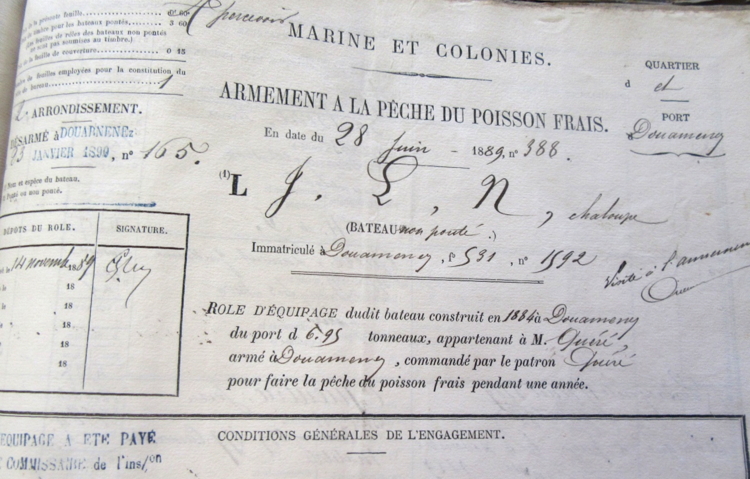 de la présente feuille
timbre pour les bateaux pontés, 3 60
feuilles de rôles des bateaux non pontés
sont pas soumises au timbre.)
de la feuille de couverture 0 15
de feuilles employées pour la constitution du
de bateau 1
A percevoir
MARINE ET COLONIES.
QUARTIER
d et
PORT
Douarnenez
2 ARRONDISSEMENT.
DÉSARMÉ à DOUARNENEZ
JANVIER 1890, n° 165.
Nom ou espèce du bateau.
Ponté ou non ponté.
ARMEMENT A LA PÊCHE DU POISSON FRAIS.
En date du 28 Juin 1889, n° 388.
(1) L J. L, N, chaloupe
(BATEAU non ponté.)
Immatriculé à Douarnenez, f° 531, n° 1592
Visité à l'armement
DÉPÔTS DU ROLE. SIGNATURE.
14 novembre 1889
18
18
18
18
ROLE D'ÉQUIPAGE dudit bateau construit en 1884 à Douarnenez
du port d 6.95 tonneaux, appartenant à M. Quéré,
armé à Douarnenez, commandé par le patron Quéré
pour faire la pêche du poisson frais pendant une année.
EQUIPAGE A ETE PAYÉ
COMMISSAIRE de l'ins/on
CONDITIONS GÉNÉRALES DE L'ENGAGEMENT.